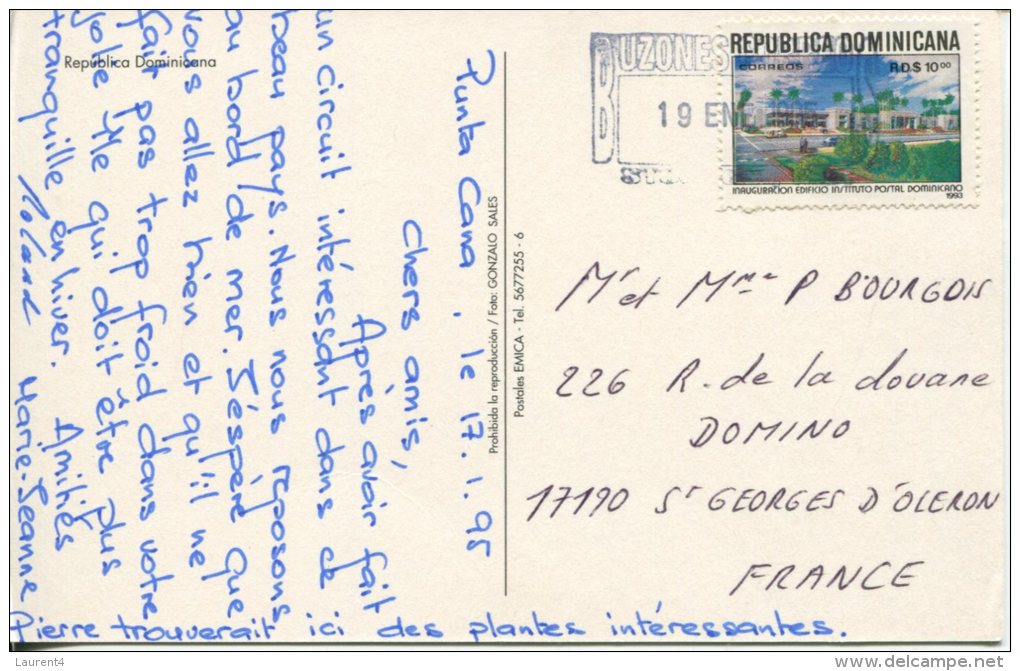 República Dominicana
Punta Cana, le 17.1.95
Chers amis,
Après avoir fait
un circuit intéressant dans ce
beau pays. Nous nous reposons
au bord de mer. J'espère que
vous allez bien et qu'il ne
fait pas trop froid dans votre
jolie île qui doit être plus
tranquille en hiver. Amitiés
Roland Marie-Jeanne
Pierre trouverait ici des plantes intéressantes.
Prohibida la reproducción / Foto: GONZALO SALES
Postales EMICA - Tel. 5677255 - 6
BUZONES
19 ENE
REPUBLICA DOMINICANA
CORREOS
R.D.$ 10⁰⁰
INAUGURACION EDIFICIO INSTITUTO POSTAL DOMINICANO
1993
Mr et Mme P BOURGOIS
226 R. de la douane
DOMINO
17190 St GEORGES D'OLERON
FRANCE
Laurent4
delcampe.net